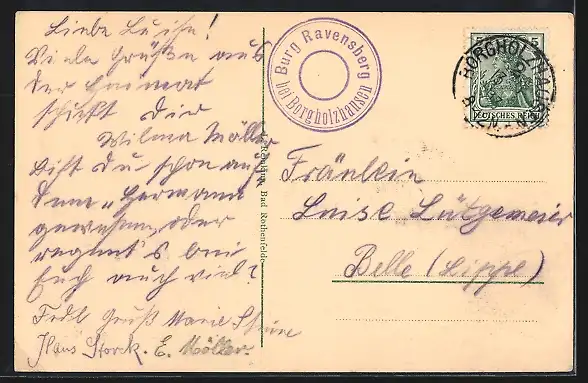 Liebe Luise!
Viele Grüße aus
der Heimat
schickt Dir
Wilma Möller
Bist du schon auf
dem „Hermann
gewesen, oder
regnet's bei
Euch auch viel?
Frdl. Gruß Marie
Hans Storck. E. Möller.
Burg Ravensberg
bei Borgholzhausen
Bad Rothenfelde
BORGHOLZHAUSEN
DEUTSCHES REICH
Fräulein
Luise Lütgemeier
Belle (Lippe)